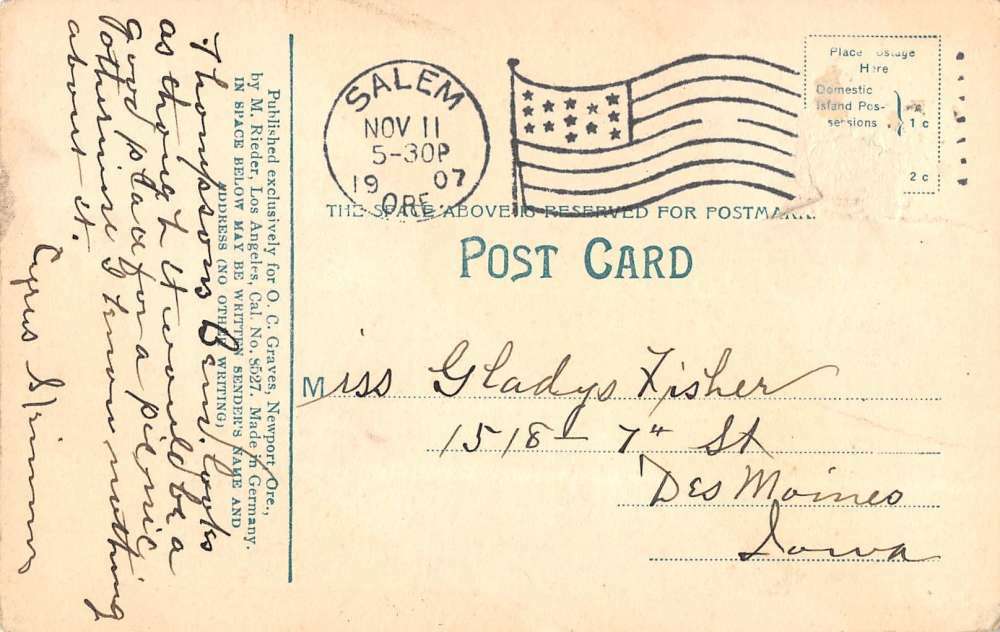 Thompsons Ben. looks
as though it would be a
good place for a picnic
Otherwise I know nothing
about it.
Cyrus
Published exclusively for O. C. Graves, Newport, Ore.,
by M. Rieder, Los Angeles, Cal. No. 8527. Made in Germany.
IN SPACE BELOW MAY BE WRITTEN SENDER'S NAME AND
ADDRESS (NO OTHER WRITING)
SALEM
NOV 11
5-30P
19 07
ORE.
Place Postage
Here
Domestic
Island Pos-
sessions
1 c
2 c
THE SPACE ABOVE IS RESERVED FOR POSTMARK.
POST CARD
Miss Gladys Fisher
1518 – 7th St
Des Moines
Iowa